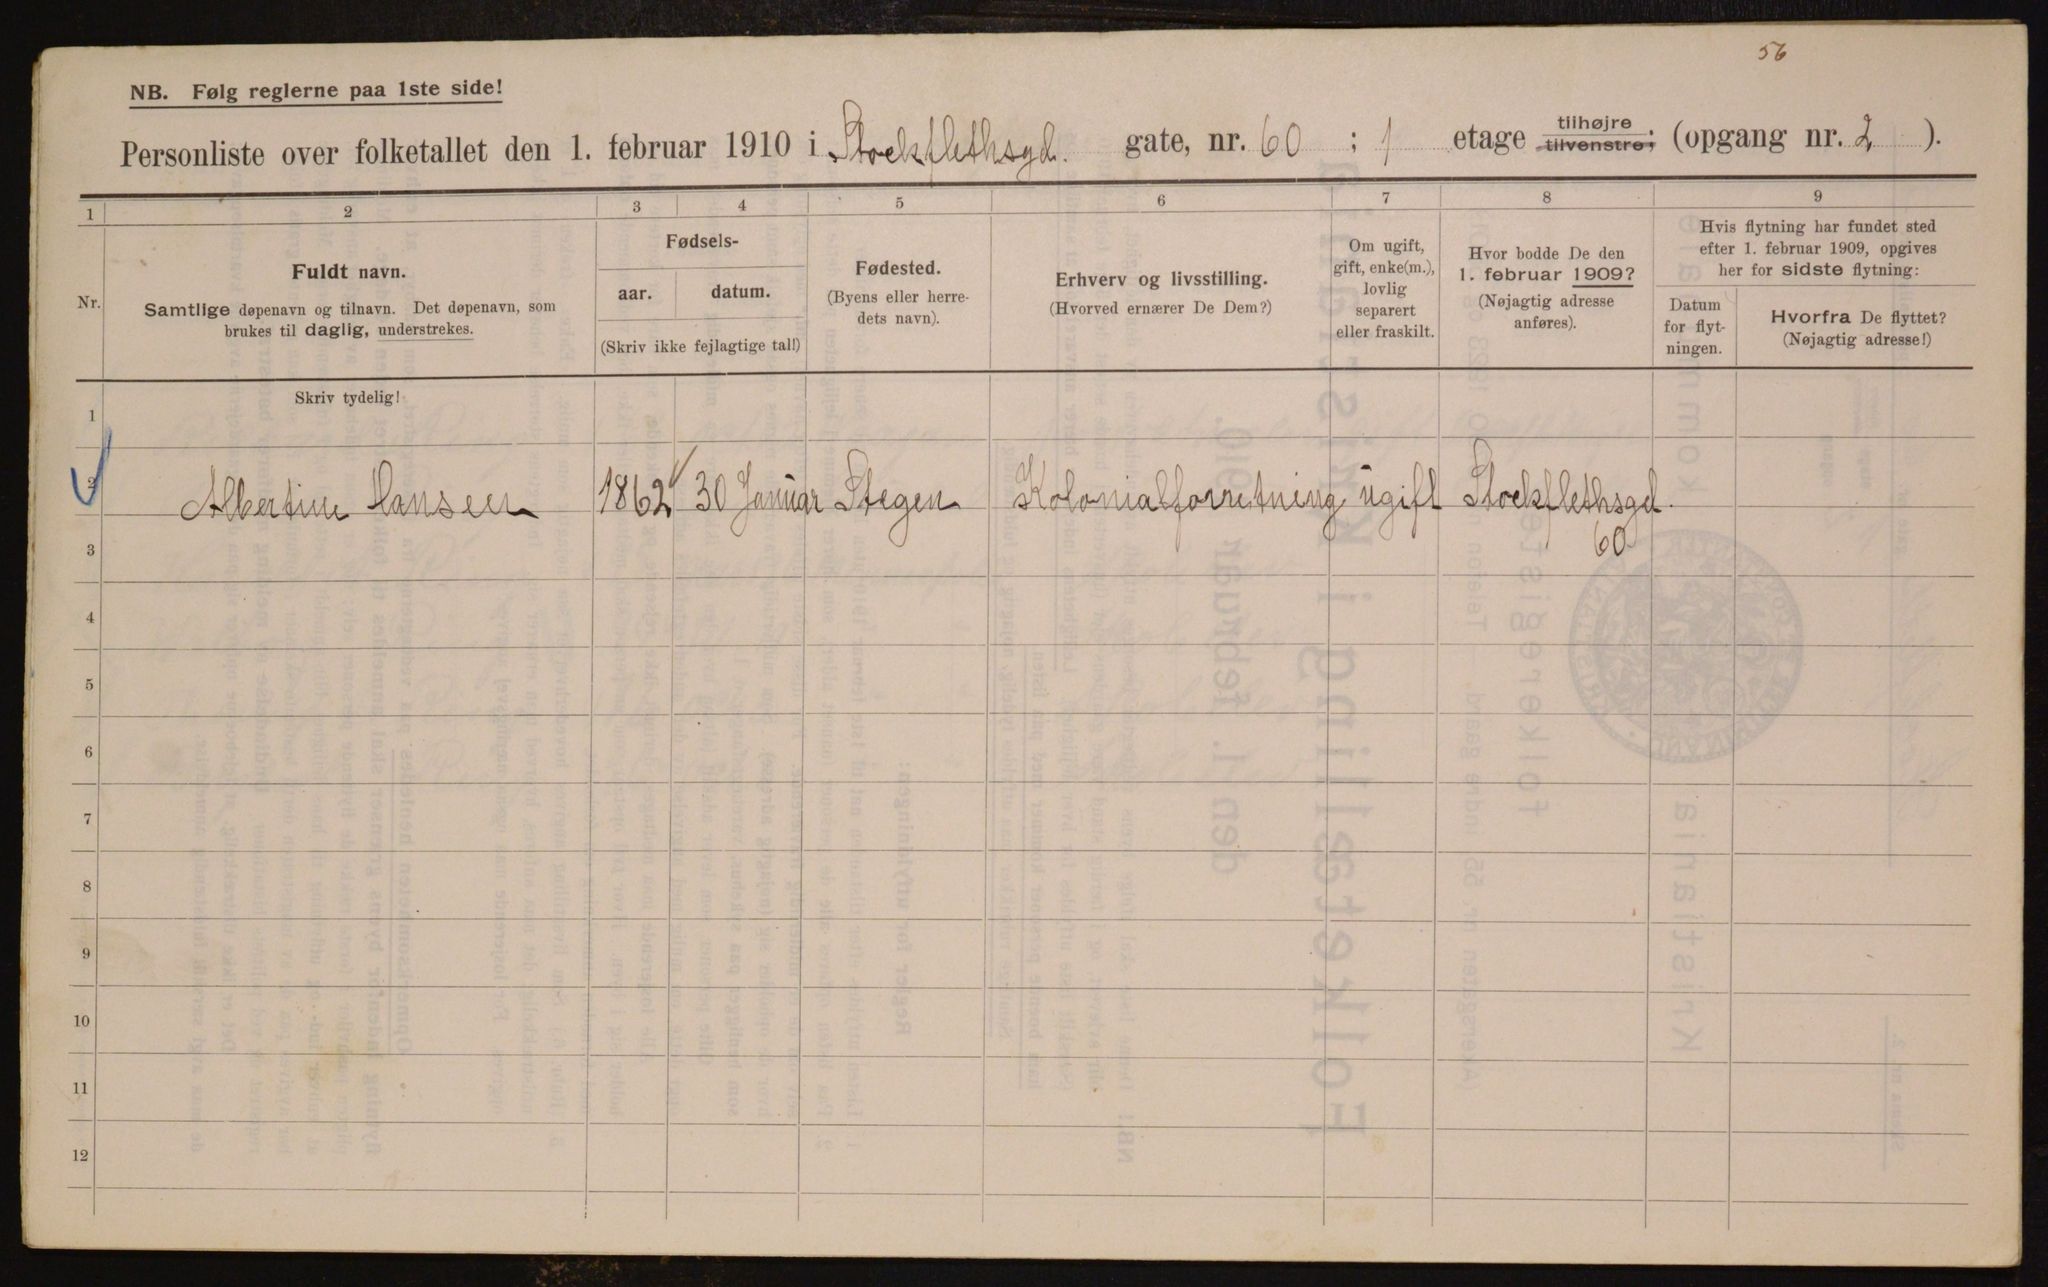 56
NB. Følg reglerne paa 1ste side!
Personliste over folketallet den 1. februar 1910 i Stockflethsgd. gate, nr. 60 ; 1 etage tilhøjre tilvenstre; (opgang nr. 2 ).
1 2 3 4 5 6 7 8 9
Nr.
Fuldt navn.
Samtlige døpenavn og tilnavn. Det døpenavn, som
brukes til daglig, understrekes.
Fødsels-
aar. datum.
(Skriv ikke fejlagtige tal!)
Fødested.
(Byens eller herre-
dets navn).
Erhverv og livsstilling.
(Hvorved ernærer De Dem?)
Om ugift,
gift, enke(m.),
lovlig
separert
eller fraskilt.
Hvor bodde De den
1. februar 1909?
(Nøjagtig adresse
anføres).
Hvis flytning har fundet sted
efter 1. februar 1909, opgives
her for sidste flytning:
Datum
for flyt-
ningen.
Hvorfra De flyttet?
(Nøjagtig adresse!)
Skriv tydelig!
1
2 Albertine Hansen 1862 30 Januar Stegen Kolonialforretning ugift Stockflethsgd.
60
3
4
5
6
7
8
9
10
11
12